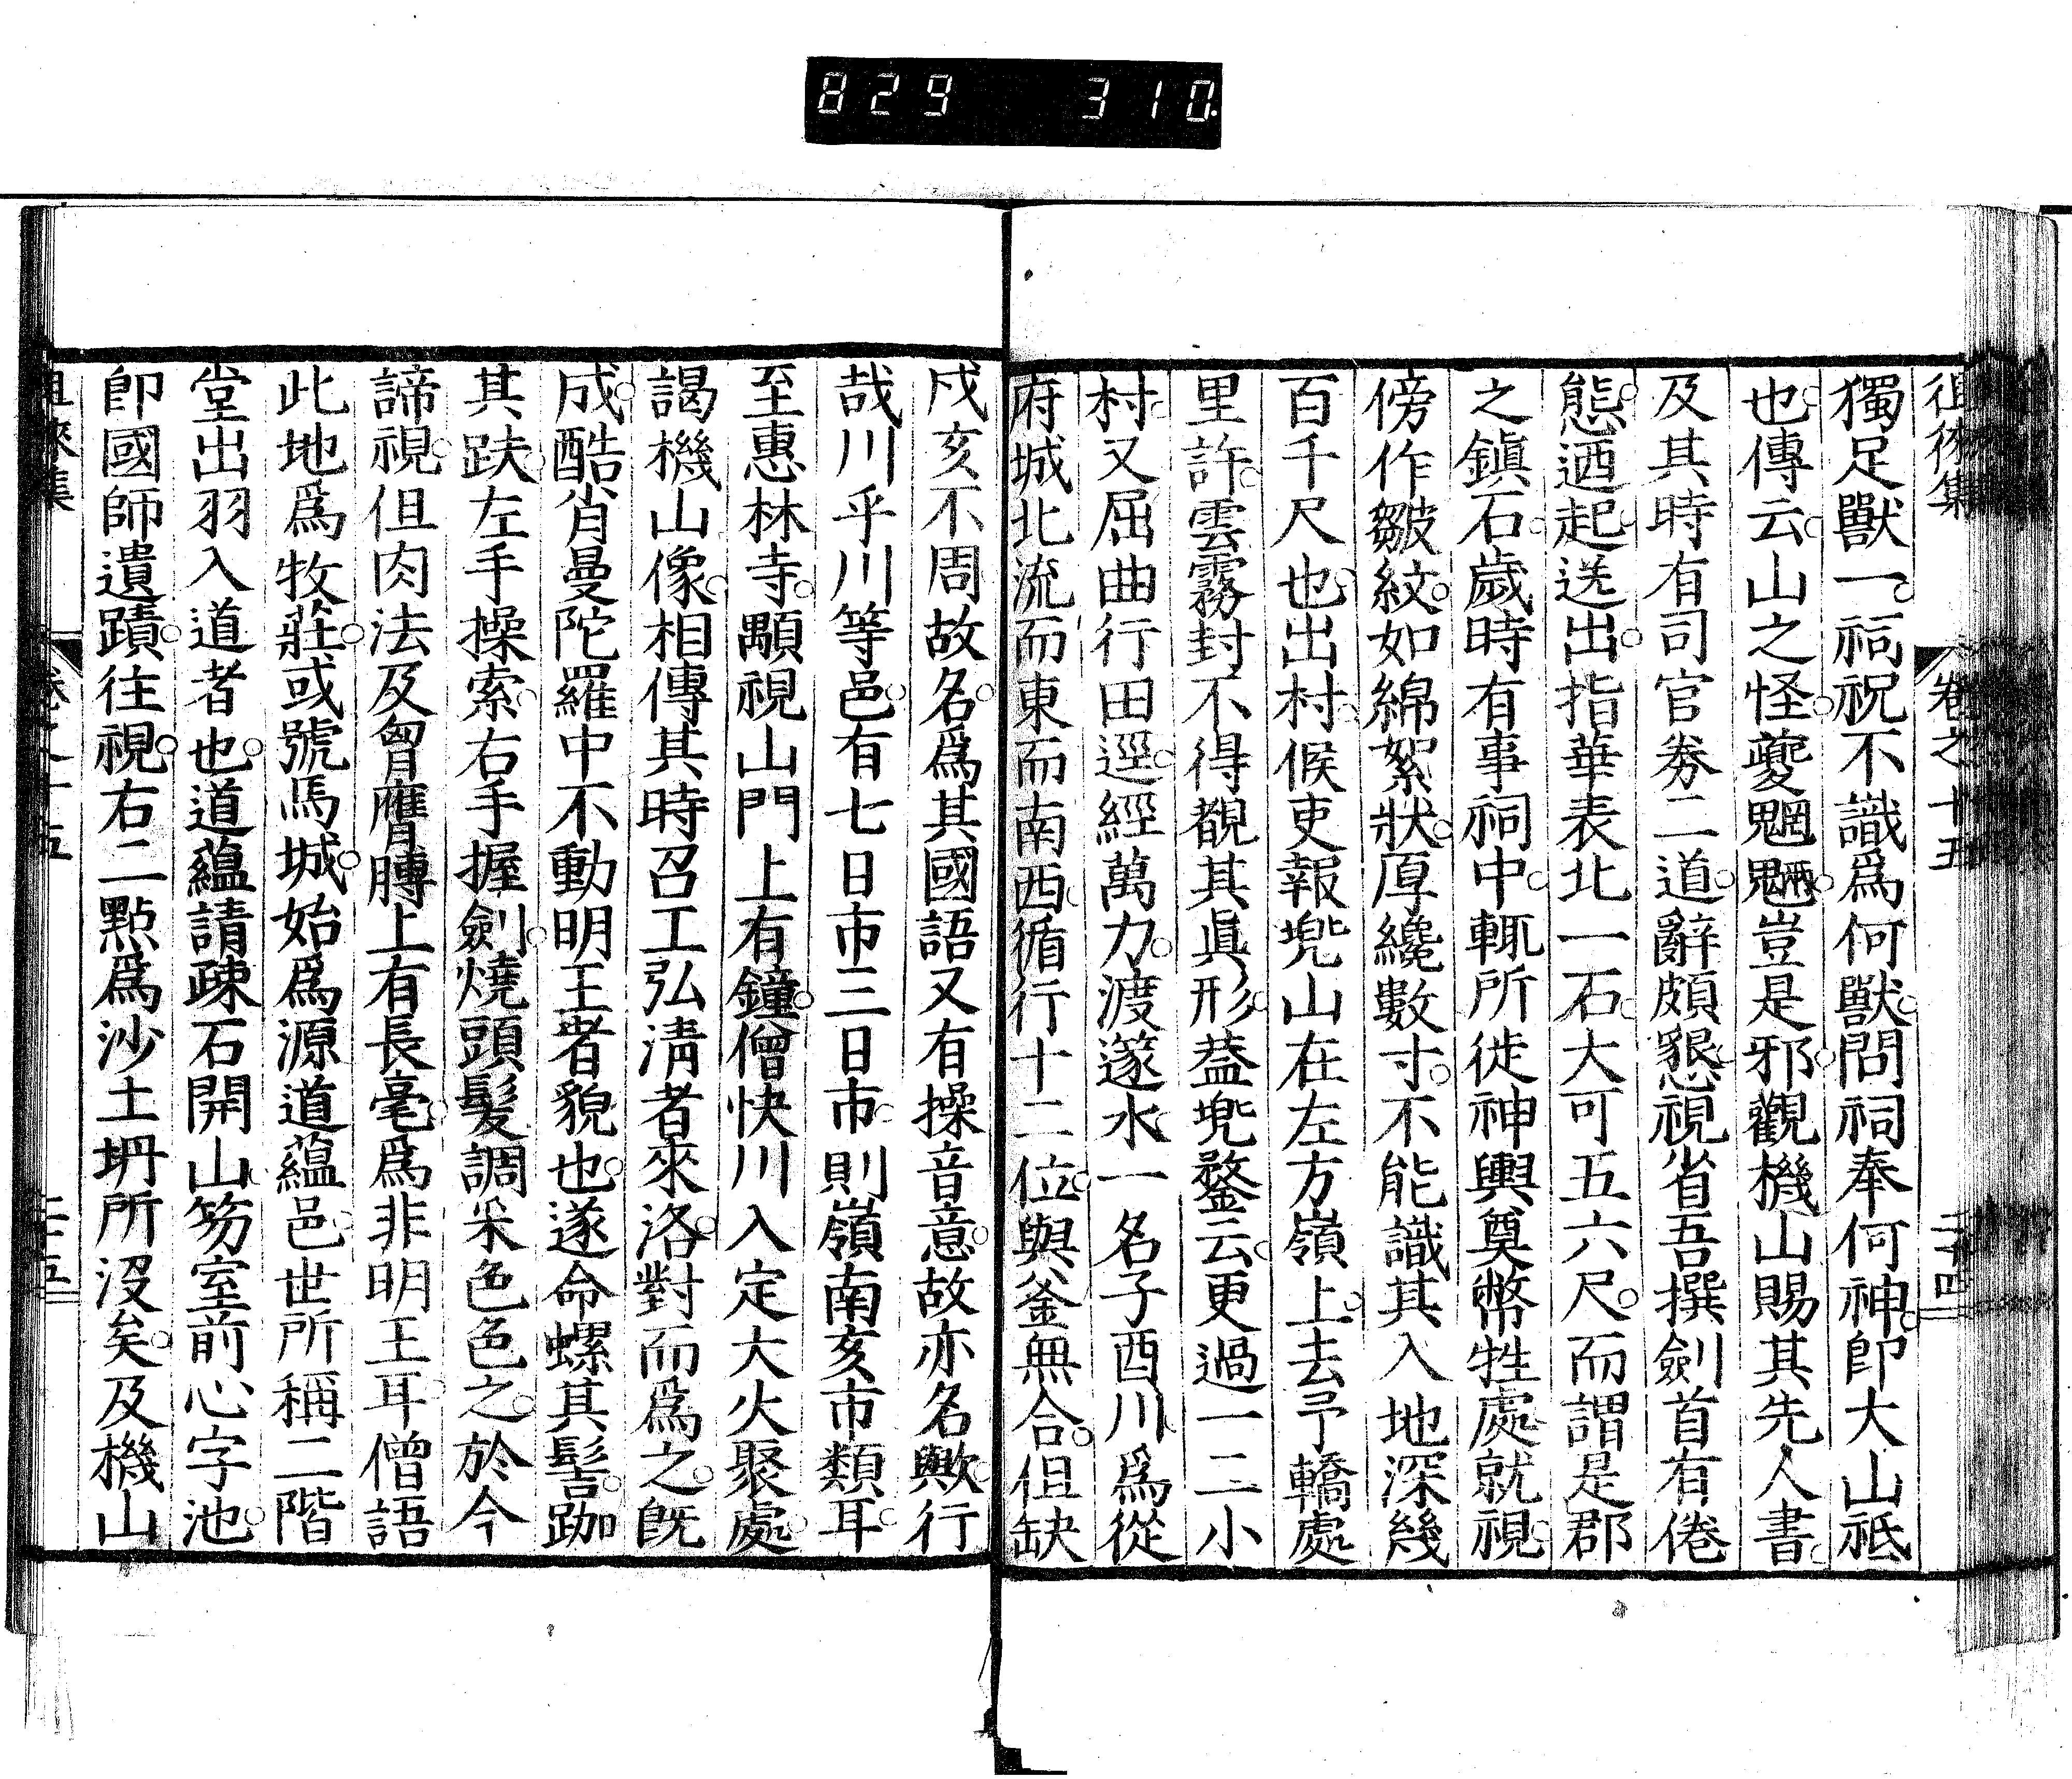 829 310
徂徠集 卷之十五 二十四
獨足獸一祠祝不識爲何獸問祠奉何神卽大山祗
也傳云山之怪夔魍魎豈是邪觀機山賜其先人書
及其時有司官劵二道辭頗懇視省吾撰劍首有倦
態迺起送出指華表北一石大可五六尺而謂是郡
之鎭石歲時有事祠中輒所徙神輿奠幣牲處就視
傍作皺紋如綿絮狀厚纔數寸不能識其入地深幾
百千尺也出村候吏報兠山在左方嶺上去予轎處
里許雲霧封不得覩其眞形葢兠鍪云更過一二小
村又屈曲行田逕經萬力渡邃水一名子酉川爲從
府城北流而東而南西循行十二位與釜無合但缺
戍亥不周故名爲其國語又有操音意故亦名歟行
哉川乎川等邑有七日市三日市則嶺南亥市類耳
至惠林寺顒視山門上有鐘僧快川入定大火聚處
謁機山像相傳其時召工弘淸者來洛對而爲之旣
成酷肖曼陀羅中不動明王者貌也遂命螺其髻跏
其趺左手操索右手握劍燒頭髮調采色色之於今
諦視但肉法及胷膺膞上有長毫爲非明王耳僧語
此地爲牧莊或號馬城始爲源道蘊邑世所稱二階
堂出羽入道者也道蘊請疎石開山笏室前心字池
卽國師遺蹟往視右二點爲沙土坍所沒矣及機山
徂徠集 卷之十五 二十五